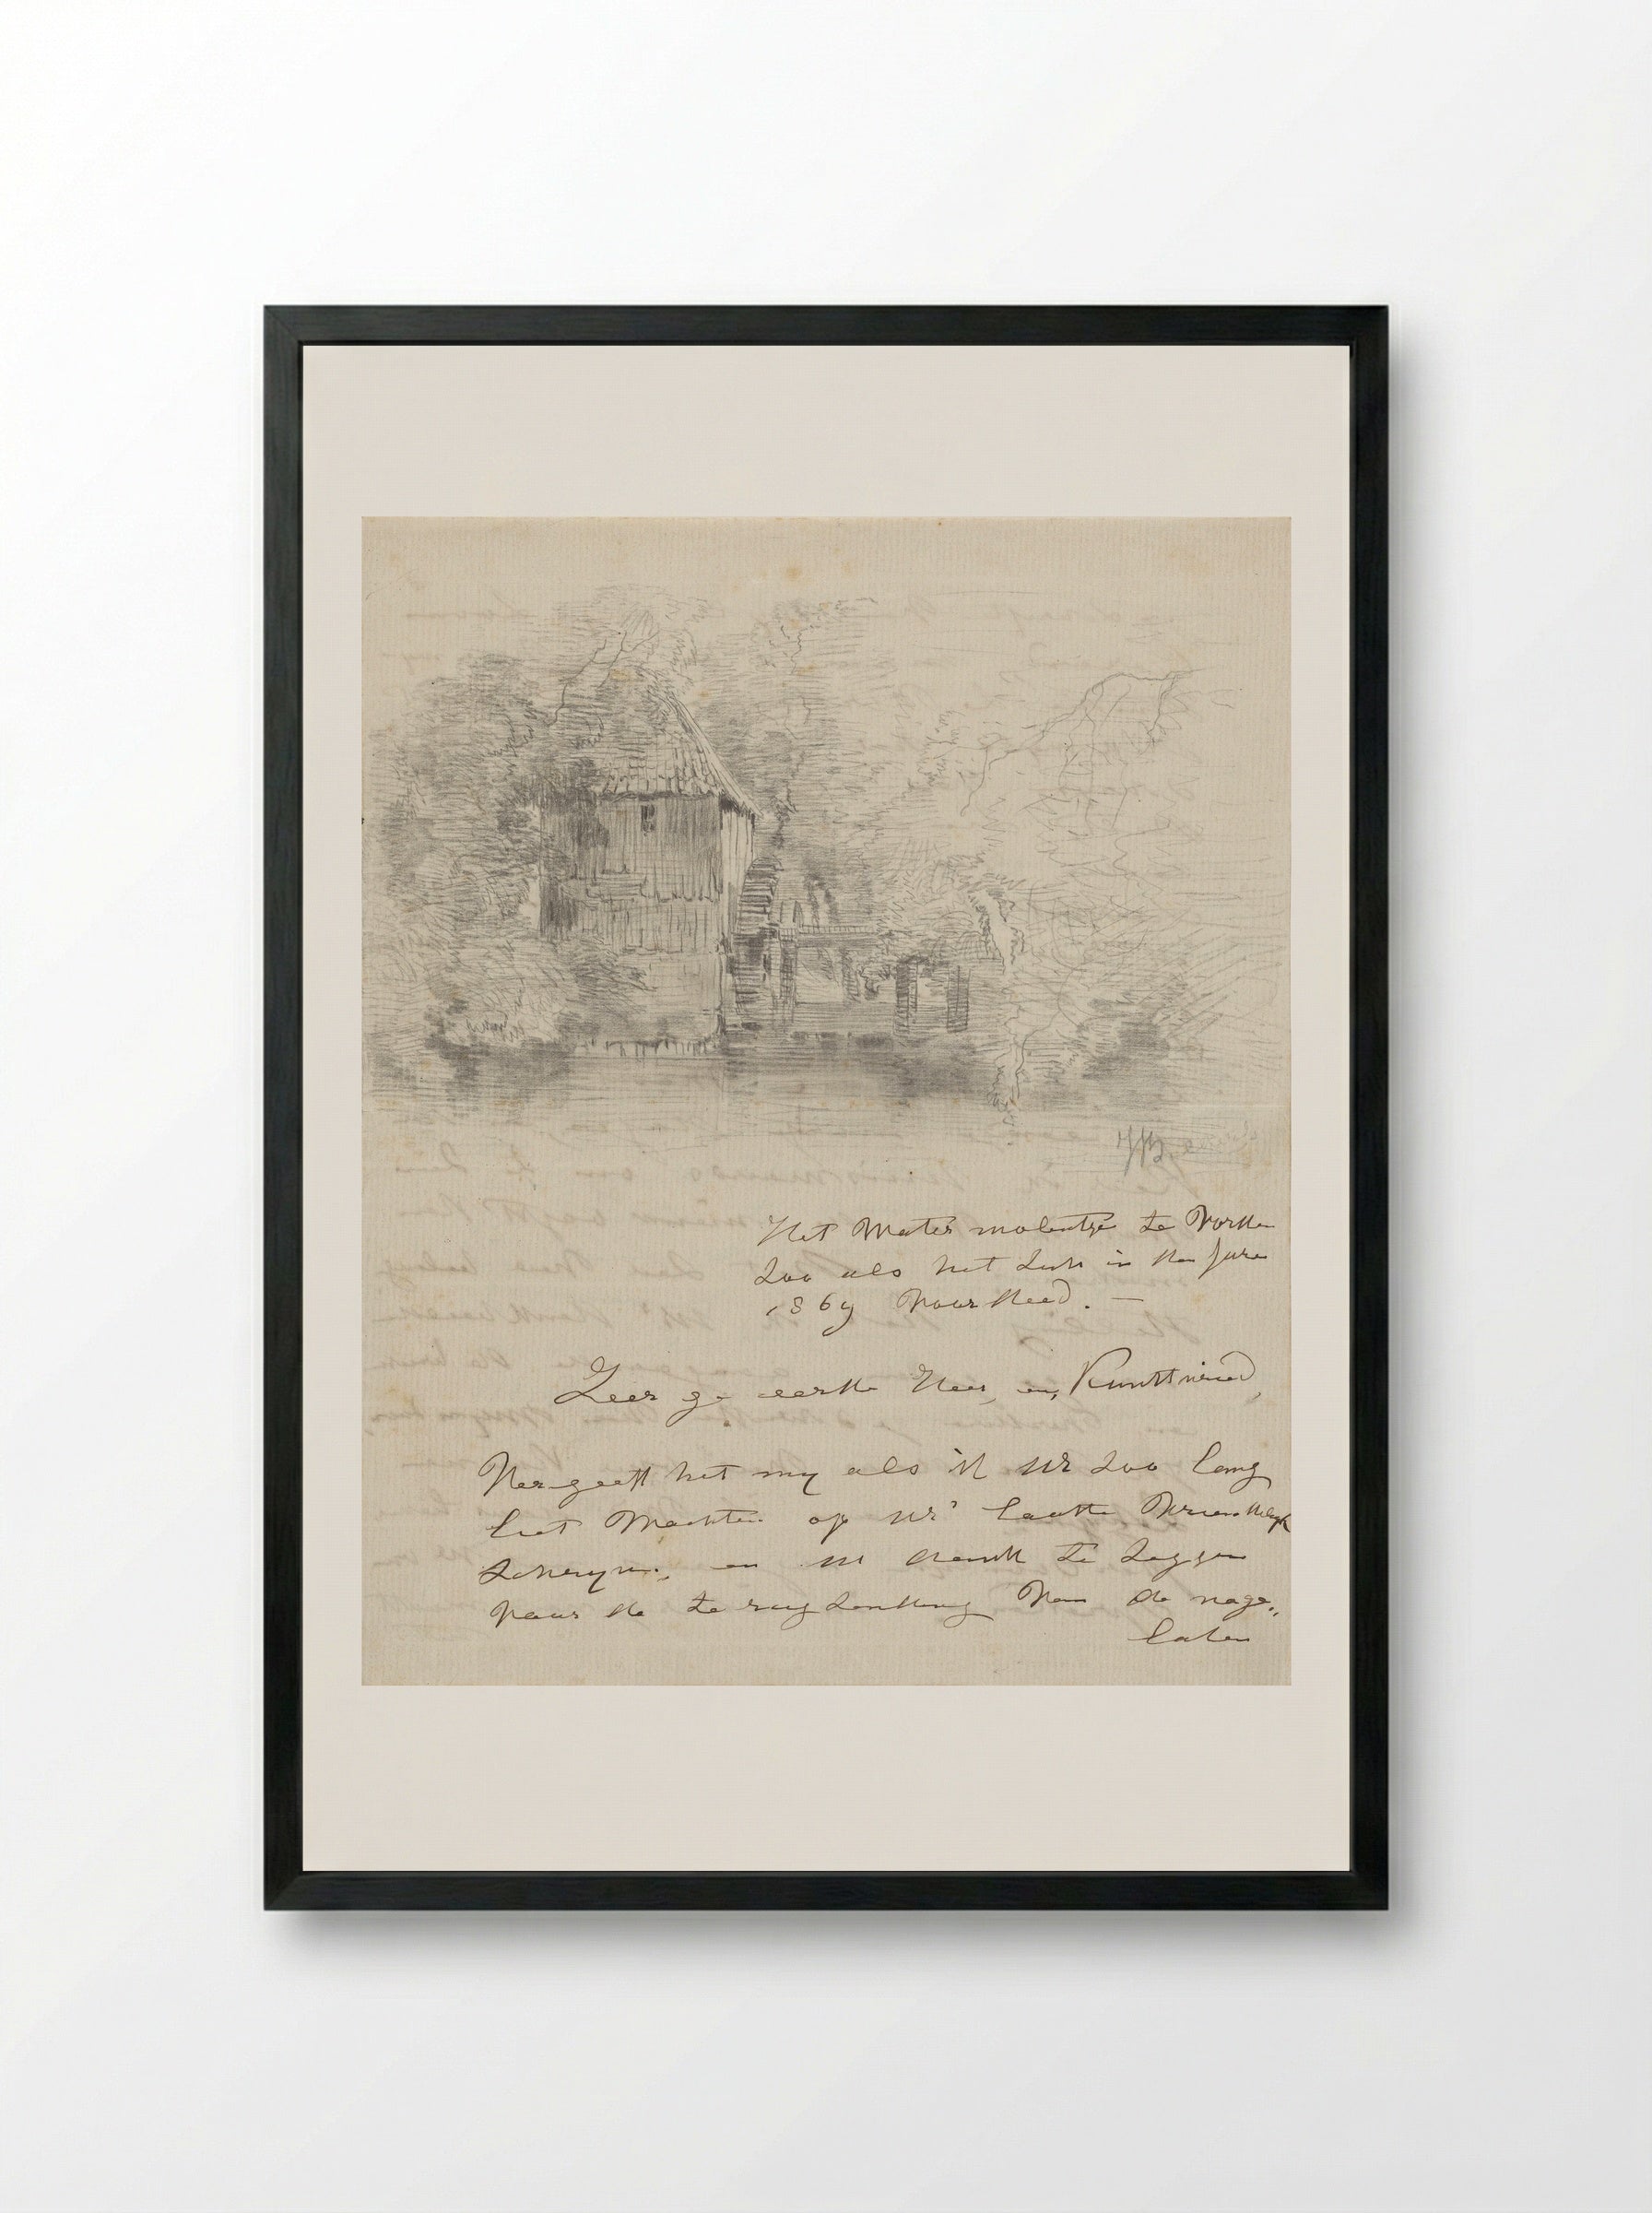 Het Water molentje te Vorden
Zoo als het zich in den Jare
1869 Voordeed. —
Zeer ge eerde Heer, en, Kunstvriend,
Vergeeft het my als ik UE Zoo lang
liet Wachten op UE' laatste
Schryven, en UE dank te Zeggen
Voor de te rug Zending Van de nage„
laten